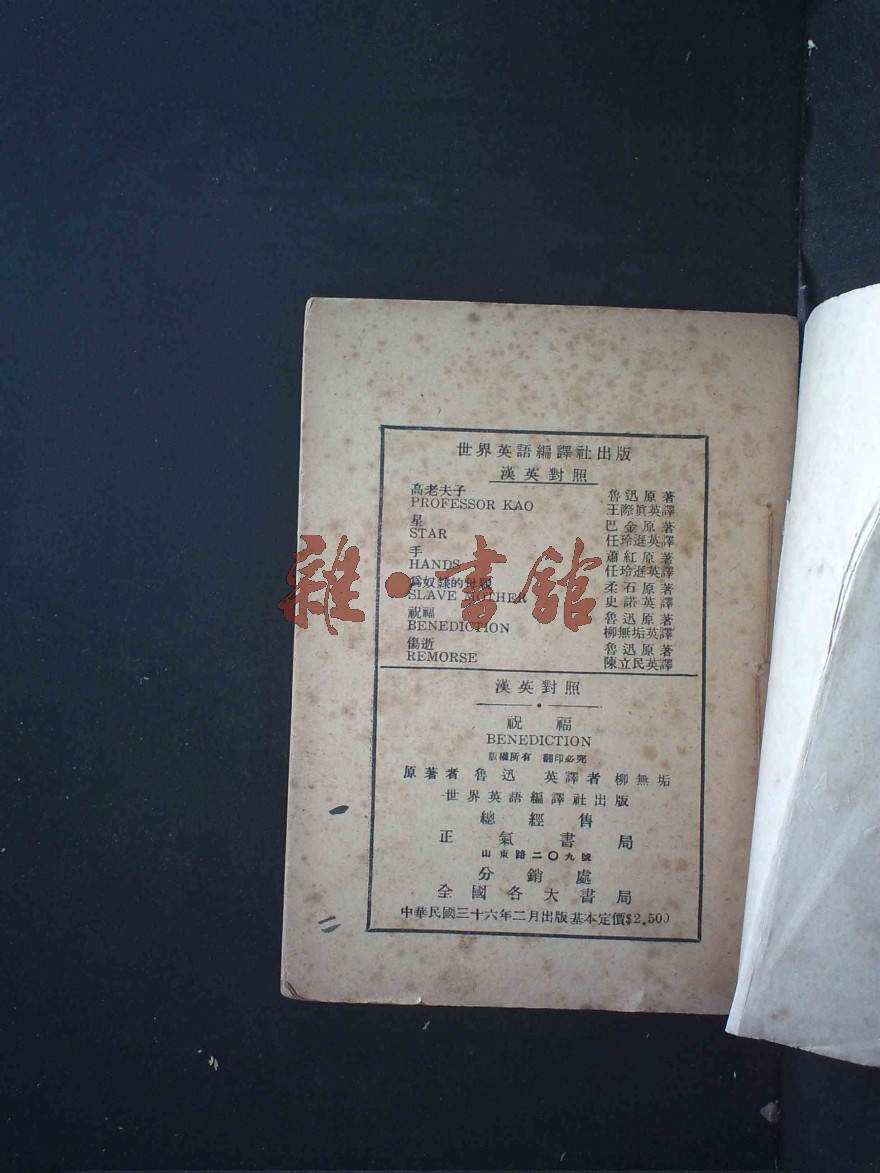 世界英語編譯社出版
漢英對照
高老夫子 魯迅原著
PROFESSOR KAO 王際眞英譯
星 巴金原著
STAR 任玲遜英譯
手 蕭紅原著
HANDS 任玲遜英譯
爲奴隸的母親 柔石原著
SLAVE MOTHER 史諾英譯
祝福 魯迅原著
BENEDICTION 柳無垢英譯
傷逝 魯迅原著
REMORSE 陳立民英譯
漢英對照
祝福
BENEDICTION
版權所有 翻印必究
原著者 魯迅 英譯者 柳無垢
世界英語編譯社出版
總經售
正氣書局
山東路二〇九號
分銷處
全國各大書局
中華民國三十六年二月出版基本定價$2.50
雜·書館